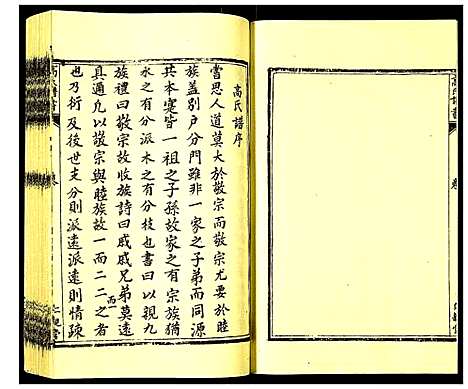 高氏譜序
嘗思人道莫大於敬宗而敬宗尤要於睦
族蓋別戶分門雖非一家之子弟而同源
共本寔皆一祖之子孫故家之有宗族猶
水之有分派木之有分枝也書曰以親九
族禮曰敬宗故收族詩曰戚戚兄弟莫遠
具邇凡以敬宗與睦族故一而二二之者
也乃衍及後世支分則派遠派遠則情疎